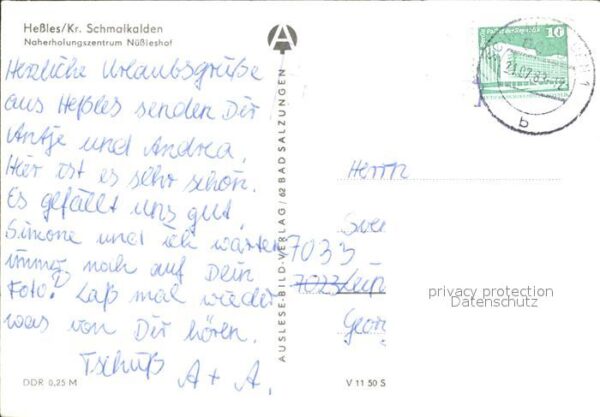 Heßles/Kr. Schmalkalden
Naherholungszentrum Nüßleshof
Herzliche Urlaubsgrüße
aus Heßles senden Dir
Antje und Andrea.
Hier ist es sehr schön.
Es gefällt uns gut.
Simone und ich warten
immer noch auf Dein
Foto! Laß mal wieder
was von Dir hören.
Tschüß
A + A.
DDR 0,25 M
A
AUSLESE-BILD-VERLAG / 62 BAD SALZUNGEN
10
21.07.83-12
b
Herrn
Sve
7033
7023 Leip
Georg
privacy protection
Datenschutz
V 11 50 S